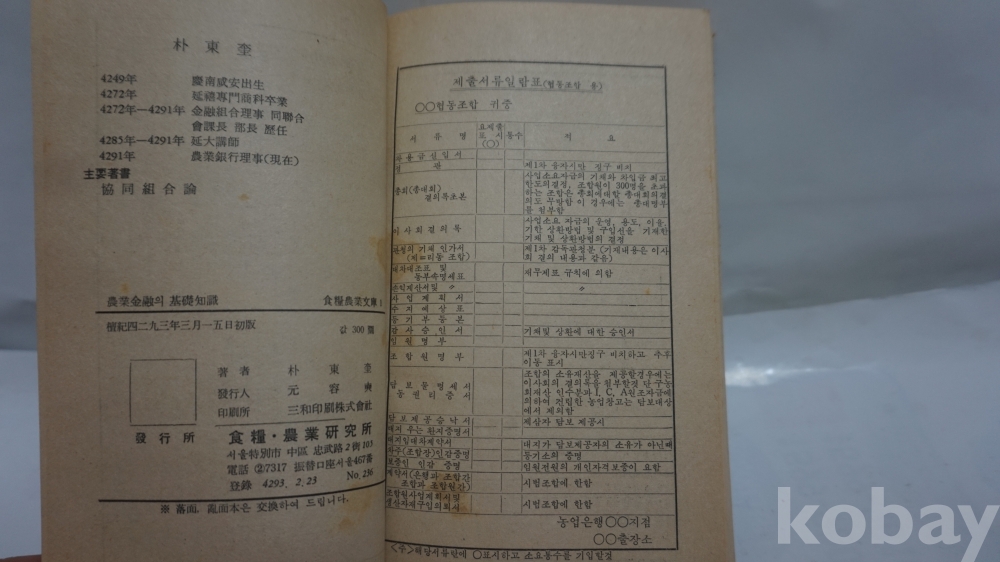 朴東奎
4249年 慶南咸安出生
4272年 延禧專門商科卒業
4272年—4291年 金融組合理事 同聯合
會課長 部長 歷任
4285年—4291年 延大講師
4291年 農業銀行理事(現在)
主要著書
協同組合論
農業金融의 基礎知識 食糧農業文庫
檀紀四二九三年三月一五日初版 값 300 圜
著者 朴東奎
發行人 元容奭
印刷所 三和印刷株式會社
發行所 食糧・農業研究所
서울特別市 中區 忠武路2街103
電話 ②7317 振替口座서울467番
登錄 4293. 2. 23 No. 236
※ 落面, 亂面本은 交換하여 드립니다.
제출서류일람표(협동조합 용)
○○협동조합 귀중
서류명 요제출표시(○) 통수 적요
차용금신입서
정관 제1차 융자시만 징구 비치
총회(총대회) 사업소요자금의 기채와 차입금 최고
결의록초본 한도의결정, 조합원이 300명을 초과
하는 조합은 총회에대할 총대회의결
의도 무방함 이 경우에는 총대명부
를 첨부함
이사회결의록 사업소요 자금의 운영, 용도, 이율,
기한 상환방법 및 구입선을 기재한
기채 및 상환방법의 결정
관청의 기채 인가서 제1차 감독관청분 (기재내용은 이사
회 결의 내용과 같음)
대차대조표 및 재무제표 규칙에 의함
동부속명세표
손익계산서및 〃 〃
사업계획서
수지예상표
등기부등본
감사승인서 기채및 상환에 대한 승인서
임원명부
조합원명부 제1차 융자시만징구 비치하고 추후
이동 표시
담보물명세서 조합의 소유재산을 제공할경우에는
동권리증서 이사회의 결의록을 첨부할것 단 구농
회재산 인수분과 I. C. A원조자금에
의하여 건립한 농업창고는 담보대상
에서 제외함
담보제공승낙서 제삼자 담보 제공시
대지임대차계약서 대지가 담보제공자의 소유가 아닌때
등기소의 증명
보증인 인감 증명 임원전원의 개인자격보증이 요함
계약서(은행과 조합간 시범조합에 한함
조합과 조합원간)
조합원사업계획서및 시범조합에 한함
생산자재구입의뢰서
농업은행○○지점
○○출장소
<주>해당서류란에 ○표시하고 소요통수를 기입할것
kobay